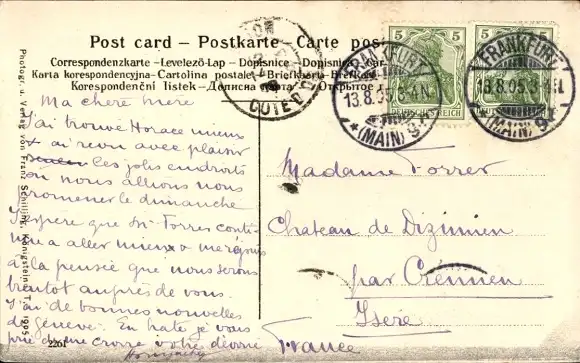 Post card – Postkarte – Carte pos
Correspondenzkarte – Levelező-Lap – Dopisnice – Dopisnica – Car
Karta korespondencyjna – Cartolina postale – Briefkaart – Brefkort
Korespondenční listek – Дописна карта – Открытое
Photogr. u. Verlag von Franz Schilling, Königstein i. T. 1905
2261
5 5
5 5
DEUTSCHES REICH
FRANKFURT
13.8.05. 3-4N.
*(MAIN) 9
FRANKFURT
13.8.05. 3-4N.
*(MAIN) 9
Ma chère mère
J'ai trouvé Horace mieux
et ai revu avec plaisir
ces jolis endroits
où nous allions nous
promener le dimanche
J'espère que Mr Forrer conti-
nue a aller mieux & me réjouis
à la pensée que nous serons
bientôt auprès de vous.
J'ai de bonnes nouvelles
de Genève. En hâte je vous
prie de me croire votre dévoué
Madame Forrer
Chateau de Dizimieu
par Crémieu
Isère
France